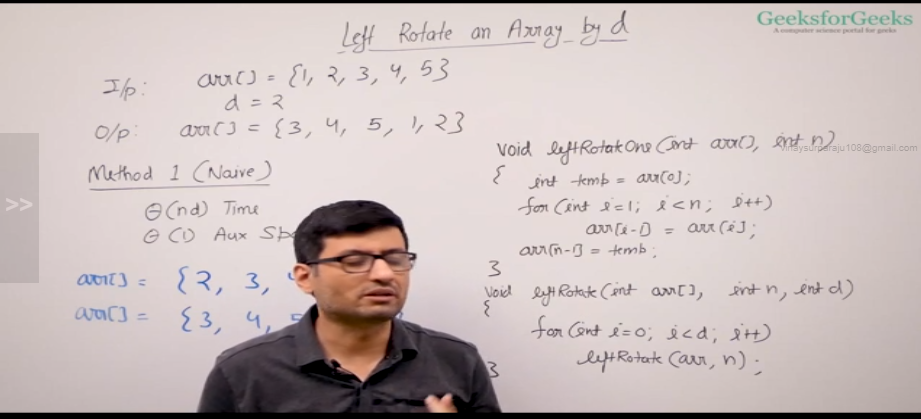 GeeksforGeeks
A computer science portal for geeks
Left Rotate an Array by d
I/p: arr[] = {1, 2, 3, 4, 5}
d = 2
O/p: arr[] = {3, 4, 5, 1, 2}
Method 1 (Naive)
Θ(nd) Time
Θ(1) Aux
arr[] = {2, 3,
arr[] = {3, 4,
>>
void leftRotateOne(int arr[], int n)
{
int temp = arr[0];
for(int i=1; i<n; i++)
arr[i-1] = arr[i];
arr[n-1] = temp;
}
void leftRotate(int arr[], int n, int d)
{
for(int i=0; i<d; i++)
leftRotate(arr, n);
}